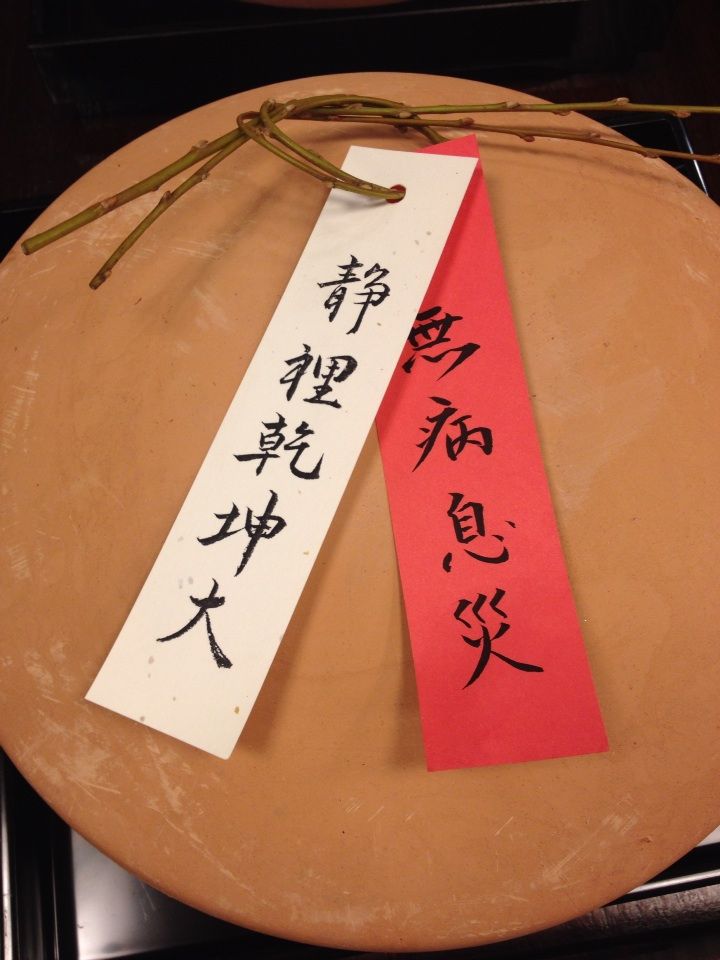 静裡乾坤大
無病息災